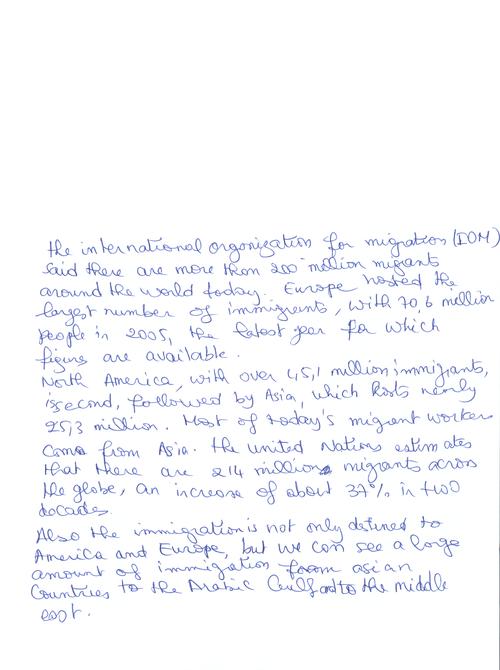 the international organization for migration (IOM)
said there are more than 200 million migrants
around the world today. Europe hosted the
largest number of immigrants, with 70,6 million
people in 2005, the latest year for which
figures are available.
North America, with over 45,1 million immigrants,
is second, followed by Asia, which hosts nearly
25,3 million. Most of today's migrant workers
come from Asia. the united Nations estimates
that there are 214 million migrants across
the globe, an increase of about 37% in two
decades.
Also the immigration is not only defined to
America and Europe, but we can see a large
amount of immigration from asian
Countries to the Arabic Gulf and to the middle
east.